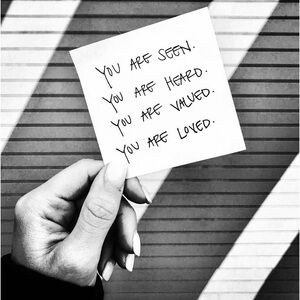 YOU ARE SEEN.
YOU ARE HEARD.
YOU ARE VALUED.
YOU ARE LOVED.